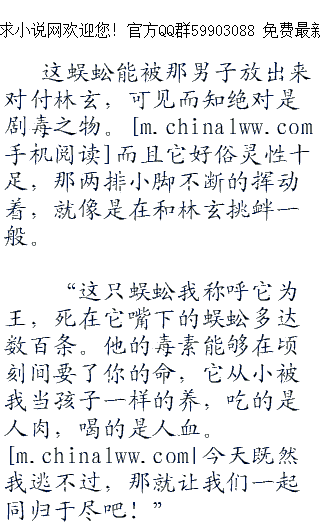 求小说网欢迎您！官方QQ群59903088 免费最新
这蜈蚣能被那男子放出来
对付林玄，可见而知绝对是
剧毒之物。[m.china1ww.com
手机阅读]而且它好俗灵性十
足，那两排小脚不断的挥动
着，就像是在和林玄挑衅一
般。
“这只蜈蚣我称呼它为
王，死在它嘴下的蜈蚣多达
数百条。他的毒素能够在顷
刻间要了你的命，它从小被
我当孩子一样的养，吃的是
人肉，喝的是人血。
[m.china1ww.com|今天既然
我逃不过，那就让我们一起
同归于尽吧！”